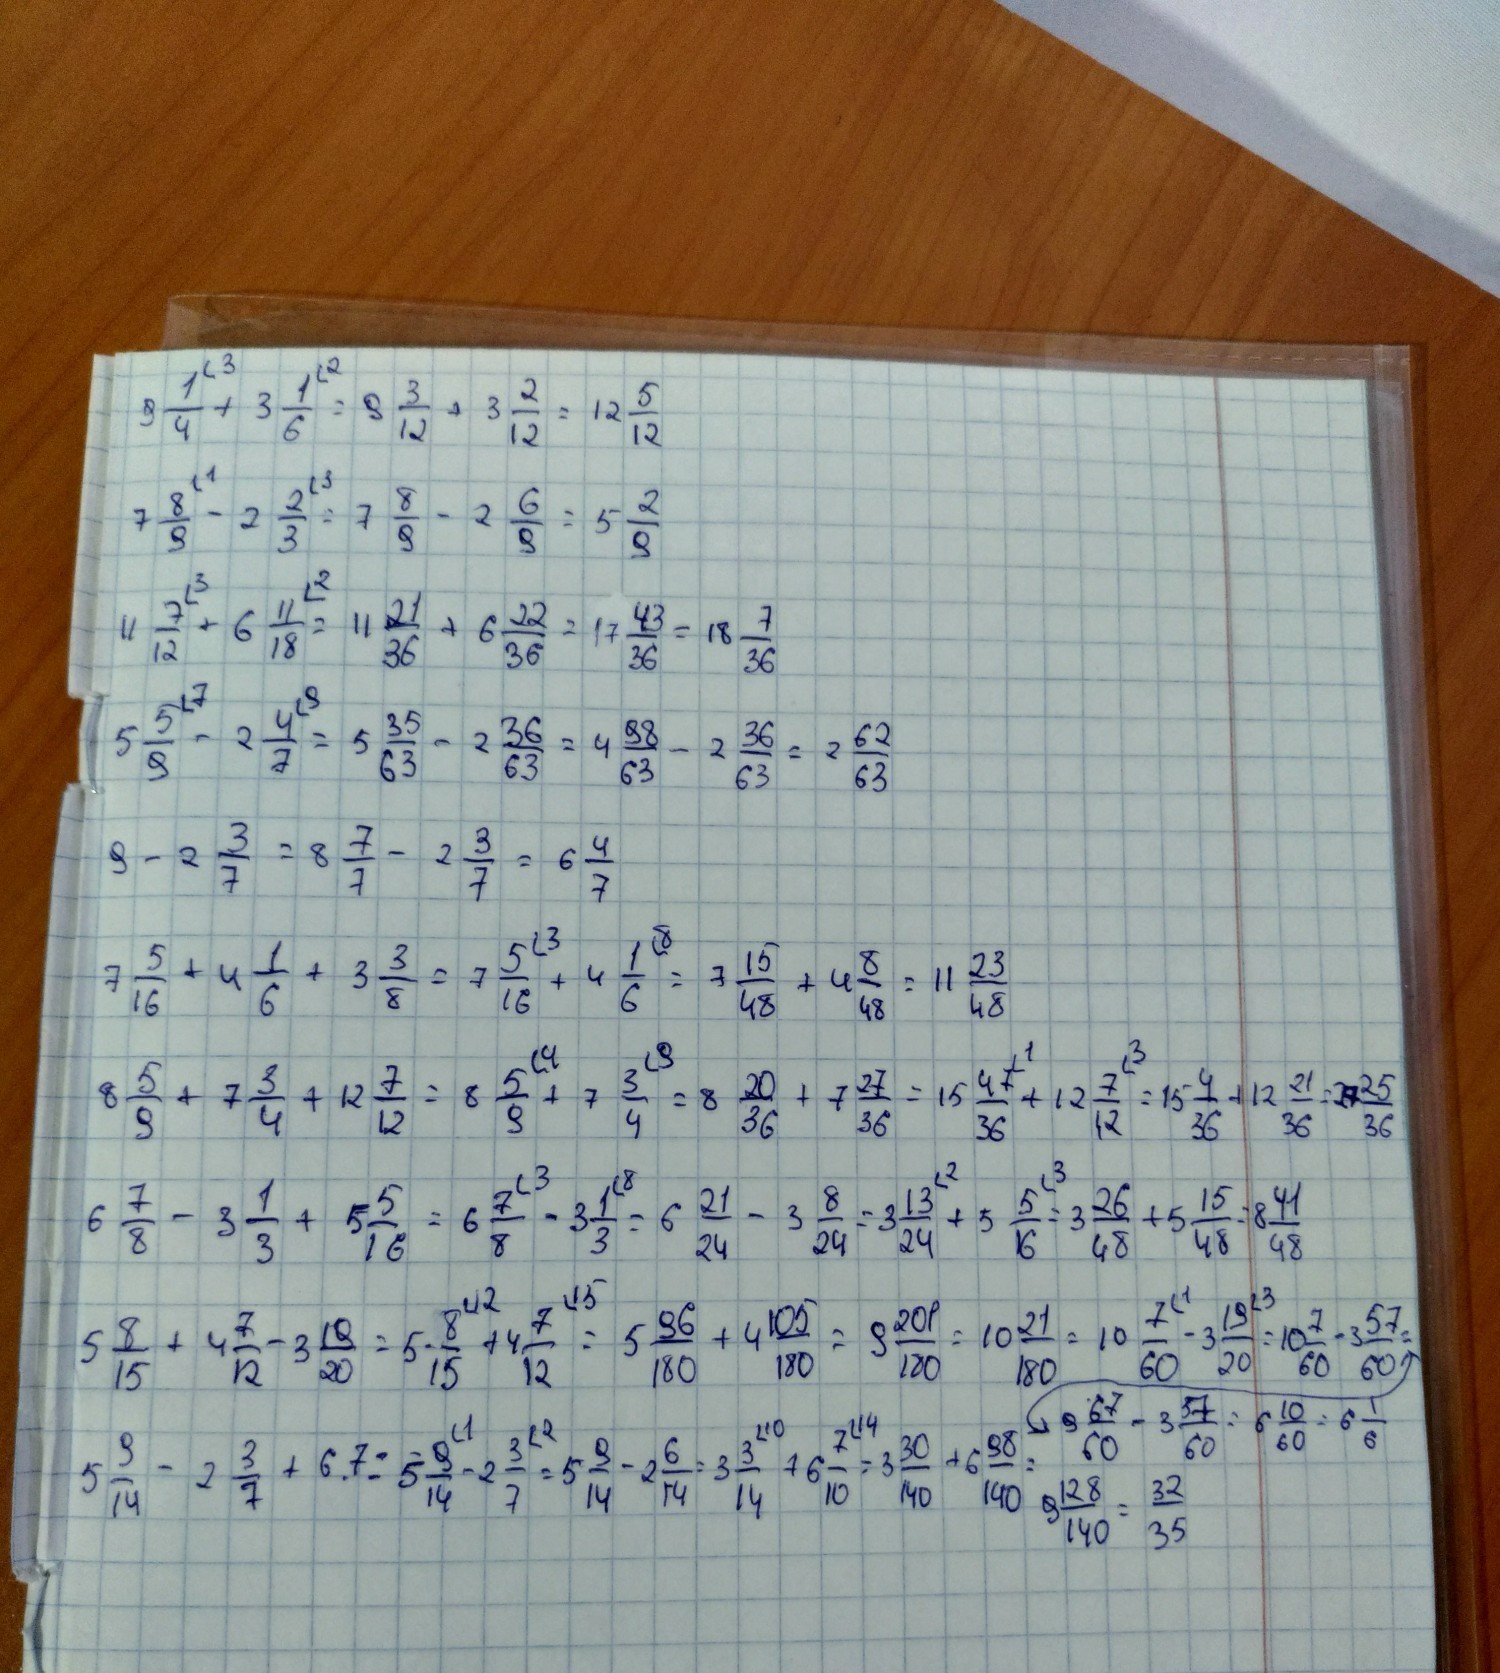 9 1/4 ⌞3 + 3 1/6 ⌞2 = 9 3/12 + 3 2/12 = 12 5/12
7 8/9 ⌞1 - 2 2/3 ⌞3 = 7 8/9 - 2 6/9 = 5 2/9
11 7/12 ⌞3 + 6 11/18 ⌞2 = 11 21/36 + 6 22/36 = 17 43/36 = 18 7/36
5 5/9 ⌞7 - 2 4/7 ⌞9 = 5 35/63 - 2 36/63 = 4 98/63 - 2 36/63 = 2 62/63
9 - 2 3/7 = 8 7/7 - 2 3/7 = 6 4/7
7 5/16 + 4 1/6 + 3 3/8 = 7 5/16 ⌞3 + 4 1/6 ⌞8 = 7 15/48 + 4 8/48 = 11 23/48
8 5/9 + 7 3/4 + 12 7/12 = 8 5/9 ⌞4 + 7 3/4 ⌞9 = 8 20/36 + 7 27/36 = 15 47/36 ⌞1 + 12 7/12 ⌞3 = 15 4/36 + 12 21/36 = 27 25/36
6 7/8 - 3 1/3 + 5 5/16 = 6 7/8 ⌞3 - 3 1/3 ⌞8 = 6 21/24 - 3 8/24 = 3 13/24 ⌞2 + 5 5/16 ⌞3 = 3 26/48 + 5 15/48 = 8 41/48
5 8/15 + 4 7/12 - 3 19/20 = 5 8/15 ⌞12 + 4 7/12 ⌞15 = 5 96/180 + 4 105/180 = 9 201/180 = 10 21/180 = 10 7/60 ⌞1 - 3 19/20 ⌞3 = 10 7/60 - 3 57/60 =
9 67/60 - 3 57/60 = 6 10/60 = 6 1/6
5 9/14 - 2 3/7 + 6.7 = 5 9/14 ⌞1 - 2 3/7 ⌞2 = 5 9/14 - 2 6/14 = 3 3/14 ⌞10 + 6 7/10 ⌞14 = 3 30/140 + 6 98/140 =
9 128/140 = 32/35